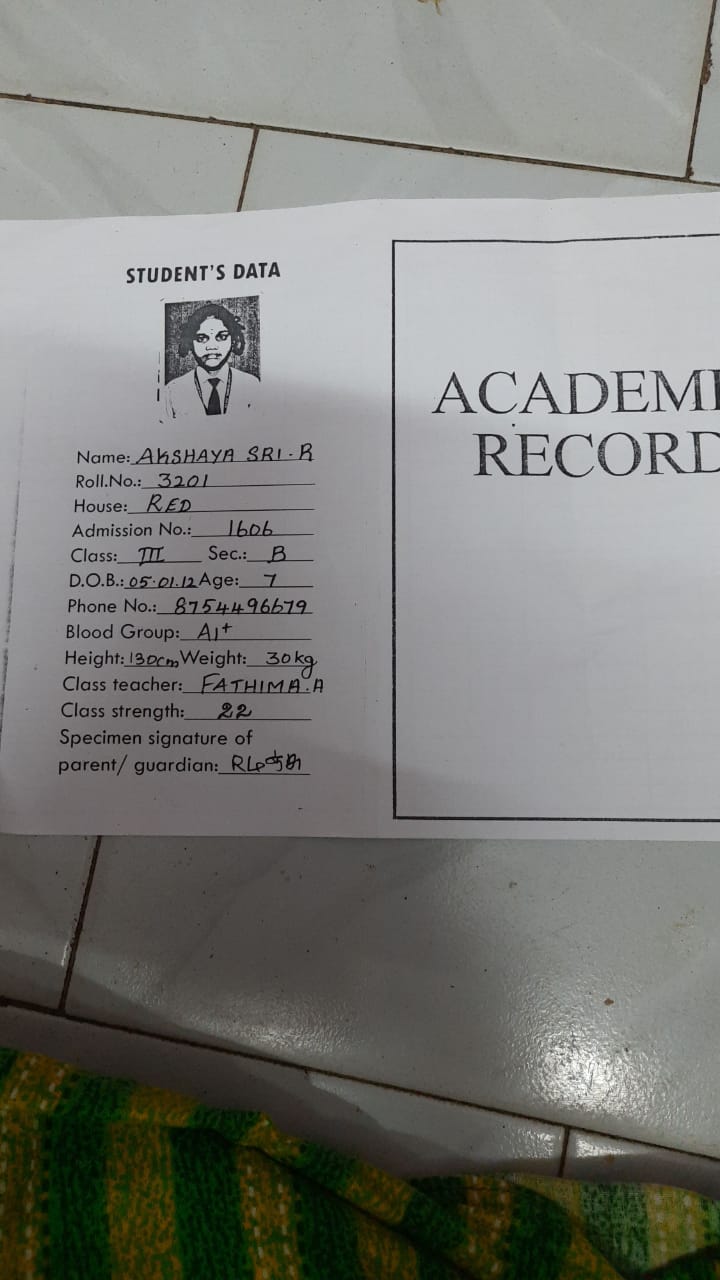 STUDENT'S DATA
Name: AKSHAYA SRI . R
Roll.No.: 3201
House: RED
Admission No.: 1606
Class: III Sec.: B
D.O.B.: 05.01.12 Age: 7
Phone No.: 8754496679
Blood Group: A1+
Height: 130cm Weight: 30kg
Class teacher: FATHIMA.A
Class strength: 22
Specimen signature of
parent/ guardian:
ACADEMI
RECORD